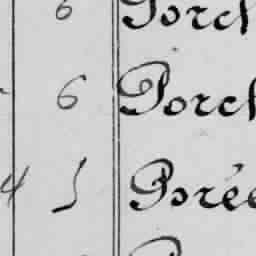 6 Porch
6 Porch
4 5 Porée